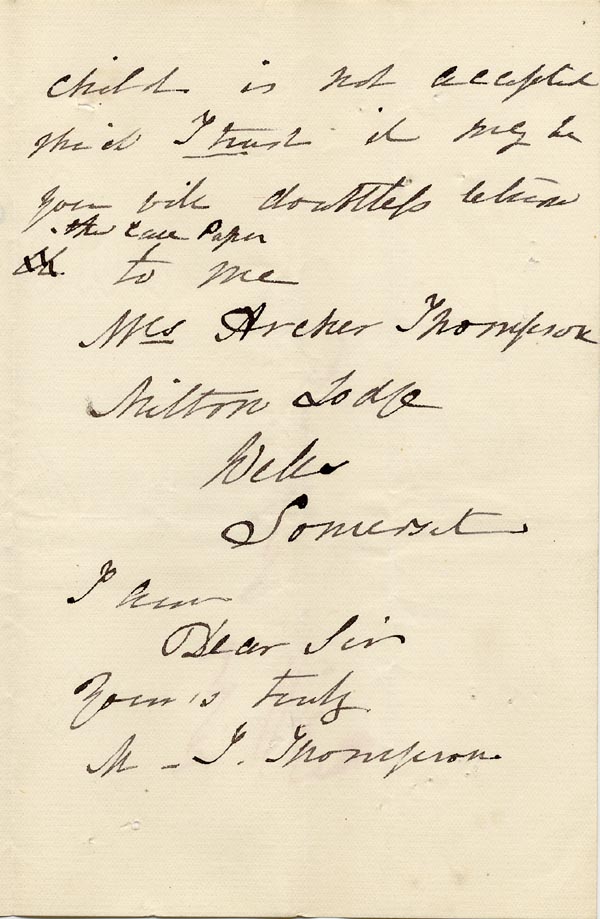 child is not accepted
which I trust it may be
you will doubtless return
the Case Paper
to me
Mrs Archer Thompson
Milton Lodge
Wells
Somerset
I am
Dear Sir
Your's truly
M - J. Thompson